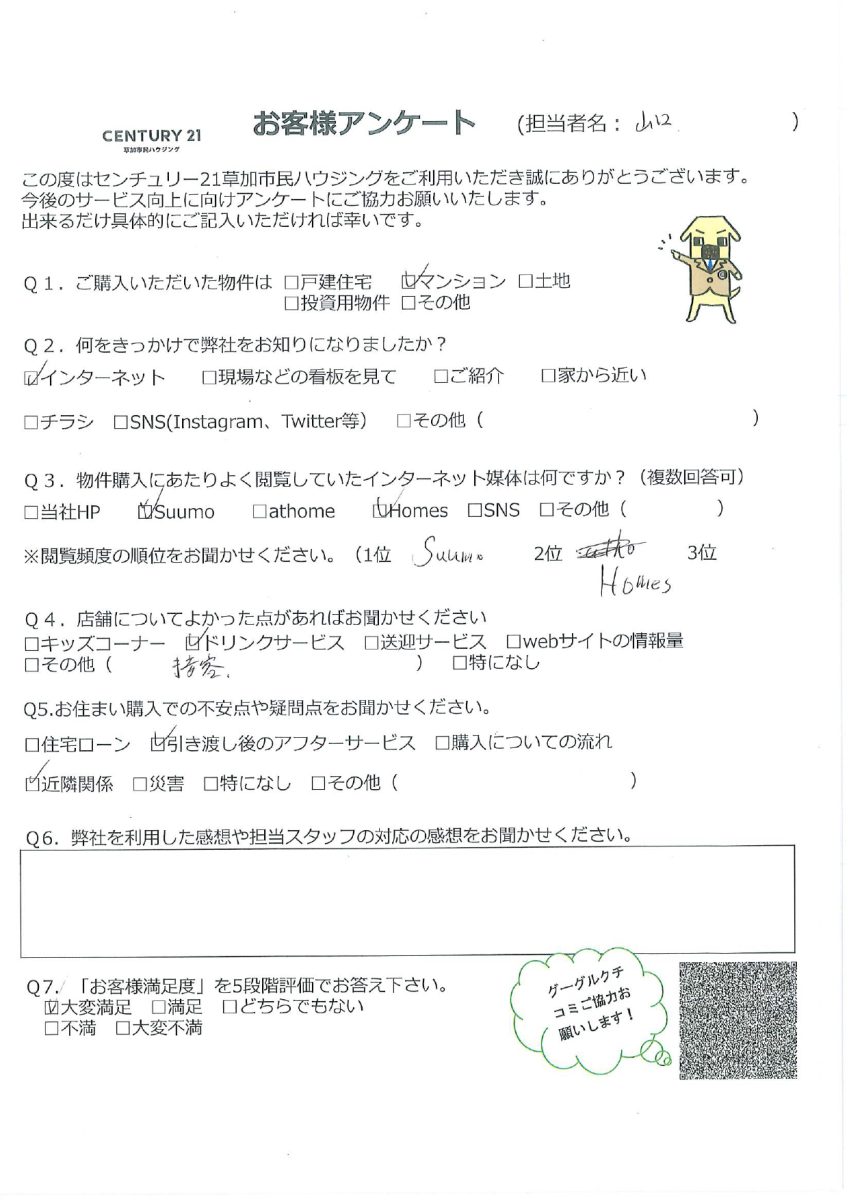 CENTURY 21
草加市民ハウジング
お客様アンケート (担当者名: 山口 )
この度はセンチュリー21草加市民ハウジングをご利用いただき誠にありがとうございます。
今後のサービス向上に向けアンケートにご協力お願いいたします。
出来るだけ具体的にご記入いただければ幸いです。
Q1.ご購入いただいた物件は □戸建住宅 ☑マンション □土地
□投資用物件 □その他
Q2.何をきっかけで弊社をお知りになりましたか?
☑インターネット □現場などの看板を見て □ご紹介 □家から近い
□チラシ □SNS(Instagram、Twitter等) □その他( )
Q3.物件購入にあたりよく閲覧していたインターネット媒体は何ですか?(複数回答可)
□当社HP ☑Suumo □athome ☑Homes □SNS □その他( )
※閲覧頻度の順位をお聞かせください。(1位 Suumo 2位 3位
Homes
Q4.店舗についてよかった点があればお聞かせください
□キッズコーナー ☑ドリンクサービス □送迎サービス □webサイトの情報量
□その他( 接客. ) □特になし
Q5.お住まい購入での不安点や疑問点をお聞かせください。
□住宅ローン ☑引き渡し後のアフターサービス □購入についての流れ
☑近隣関係 □災害 □特になし □その他( )
Q6.弊社を利用した感想や担当スタッフの対応の感想をお聞かせください。
Q7.「お客様満足度」を5段階評価でお答え下さい。
☑大変満足 □満足 □どちらでもない
□不満 □大変不満
グーグルクチ
コミご協力お
願いします!